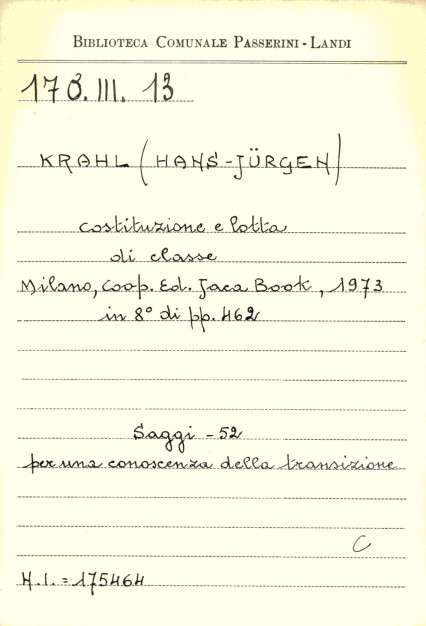 BIBLIOTECA COMUNALE PASSERINI-LANDI
178.III. 13
KRAHL (HANS-JÜRGEN)
costituzione e lotta
di classe
Milano, Coop. Ed. Jaca Book, 1973
in 8° di pp. 462
Saggi - 52
per una conoscenza della transizione
C
N.I. = 175464